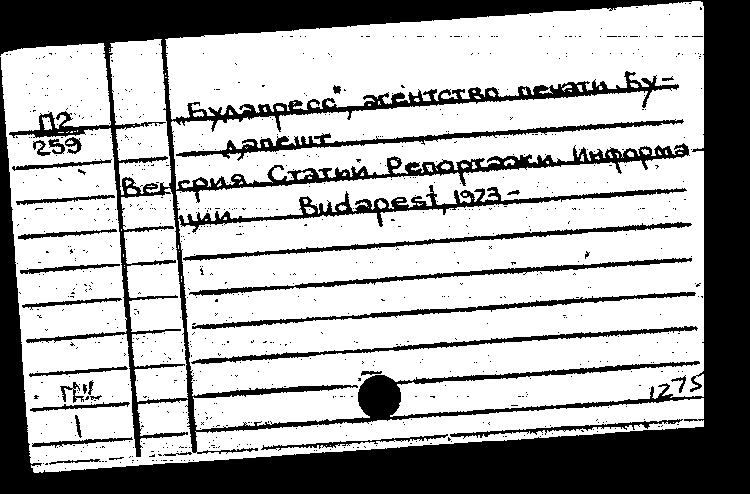 П2
259
„Будапресс", агентство печати. Бу-
дапешт.
Венгрия. Статьи. Репортажи. Информа-
ции. Budapest, 1973-
1
1275